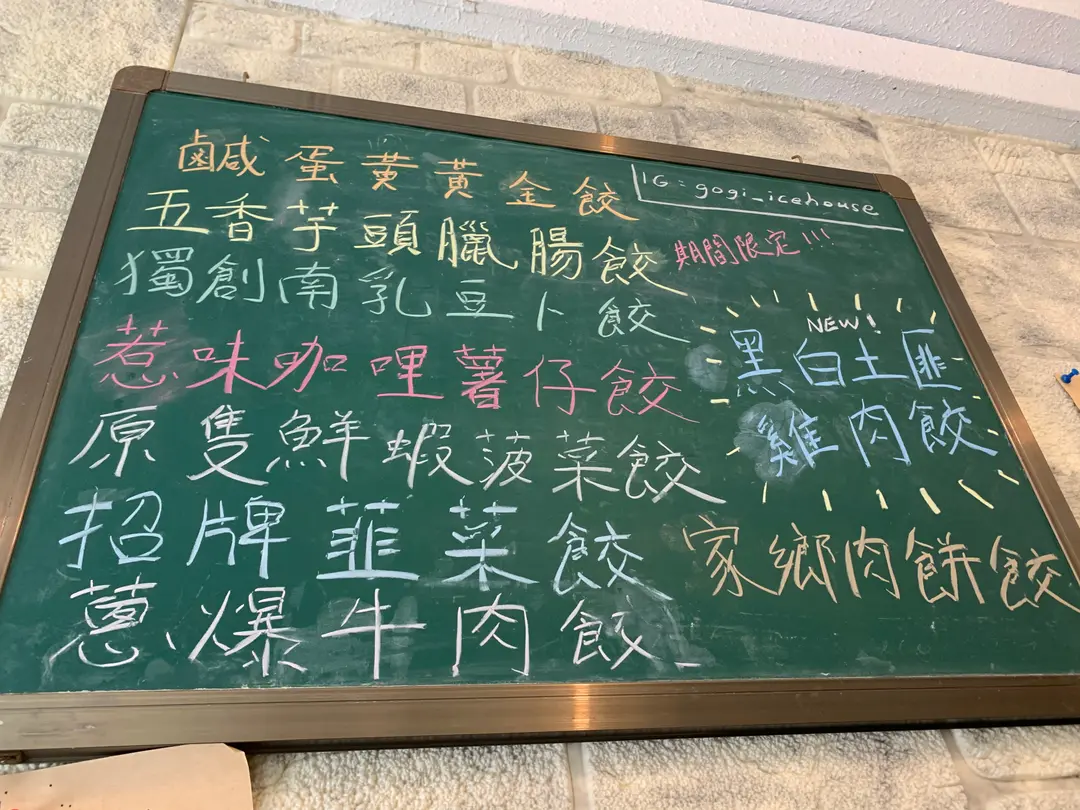 鹹蛋黃黃金餃
五香芋頭臘腸餃
獨創南乳豆卜餃
惹味咖哩薯仔餃
原隻鮮蝦菠菜餃
招牌韮菜餃
蔥爆牛肉餃
IG = gogi_icehouse
期間限定!!!
NEW!
黑白土匪
雞肉餃
家鄉肉餅餃